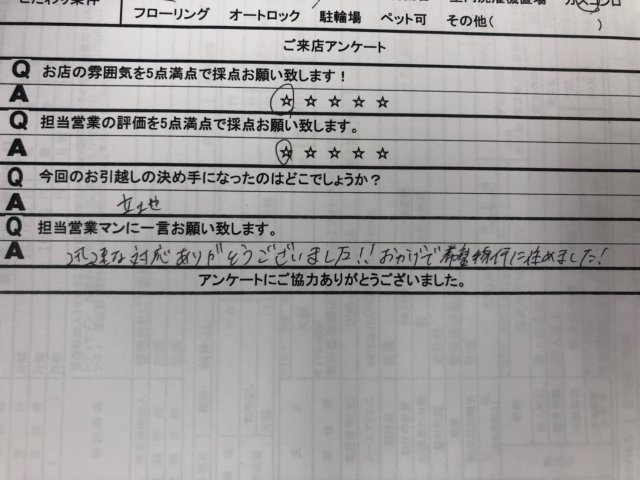 こだわり条件
フローリング オートロック 駐輪場 ペット可 その他( )
ご来店アンケート
Q お店の雰囲気を5点満点で採点お願い致します!
A ☆ ☆ ☆ ☆ ☆
Q 担当営業の評価を5点満点で採点お願い致します。
A ☆ ☆ ☆ ☆ ☆
Q 今回のお引越しの決め手になったのはどこでしょうか?
A 立地
Q 担当営業マンに一言お願い致します。
A 迅速な対応ありがとうございました!!おかげで希望物件に住めました!
アンケートにご協力ありがとうございました。